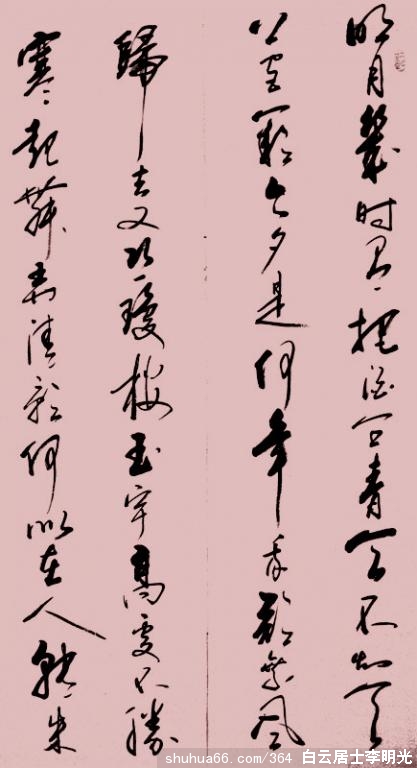 明月幾时有把酒问青天不知天
上宫阙今夕是何年我欲乘风
歸去又恐瓊楼玉宇高處不勝
寒起舞弄清影何似在人轉朱
shuhua66.com/364 白云居士李明光